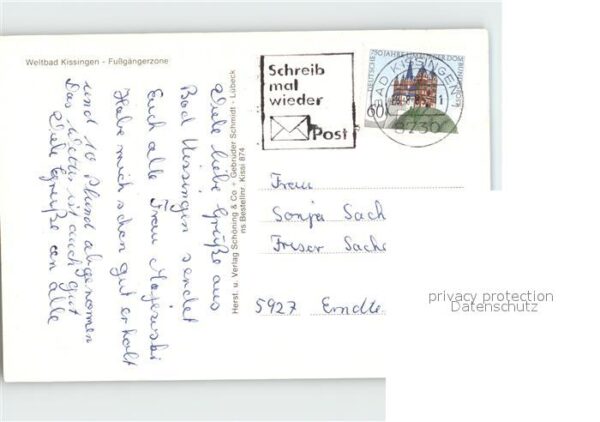 Weltbad Kissingen - Fußgängerzone
Viele liebe Grüße aus
Bad Kissingen sendet
Euch alle Frau Majewski
Habe mich schon gut erholt
und 10 Pfund abgenommen
Das ist auch gut
Viele Grüße an alle
Herst. u. Verlag Schöning & Co + Gebrüder Schmidt - Lübeck
ns Bestellnr. Kissi 874
Schreib
mal
wieder
Post
DEUTSCHE BUNDESPOST
750 JAHRE LIMBURGER DOM
60
BAD KISSINGEN
1
8730
Frau
Sonja Sach
Friser Sache
5927 Erndte
privacy protection
Datenschutz